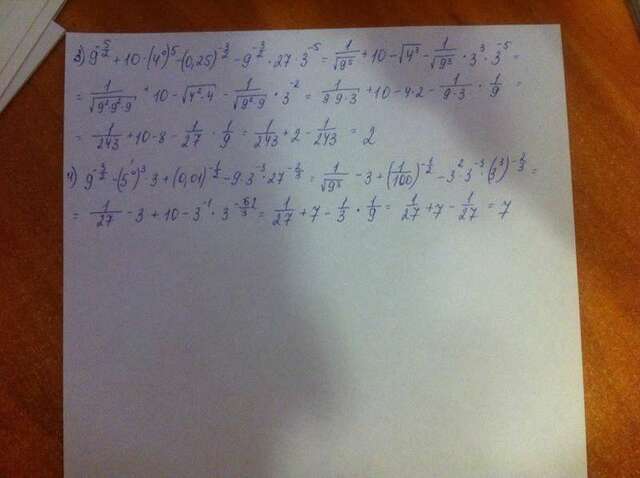 3) 9^{-5/2} + 10·(4^0)^5 - (0,25)^{-3/2} - 9^{-3/2}·27·3^{-5} = 1/√9^5 + 10 - √4^3 - 1/√9^3 · 3^3 · 3^{-5} =
= 1/√(9^2·9^2·9) + 10 - √(4^2·4) - 1/√(9^2·9) · 3^{-2} = 1/(9·9·3) + 10 - 4·2 - 1/(9·3) · 1/9 =
= 1/243 + 10 - 8 - 1/27 · 1/9 = 1/243 + 2 - 1/243 = 2
4) 9^{-3/2} - (5^0)^3·3 + (0,01)^{-1/2} - 9·3^{-3}·27^{-2/3} = 1/√9^3 - 3 + (1/100)^{-1/2} - 3^2·3^{-3}·(3^3)^{-2/3} =
= 1/27 - 3 + 10 - 3^{-1} · = 1/27 + 7 - 1/3 · 1/9 = 1/27 + 7 - 1/27 = 7